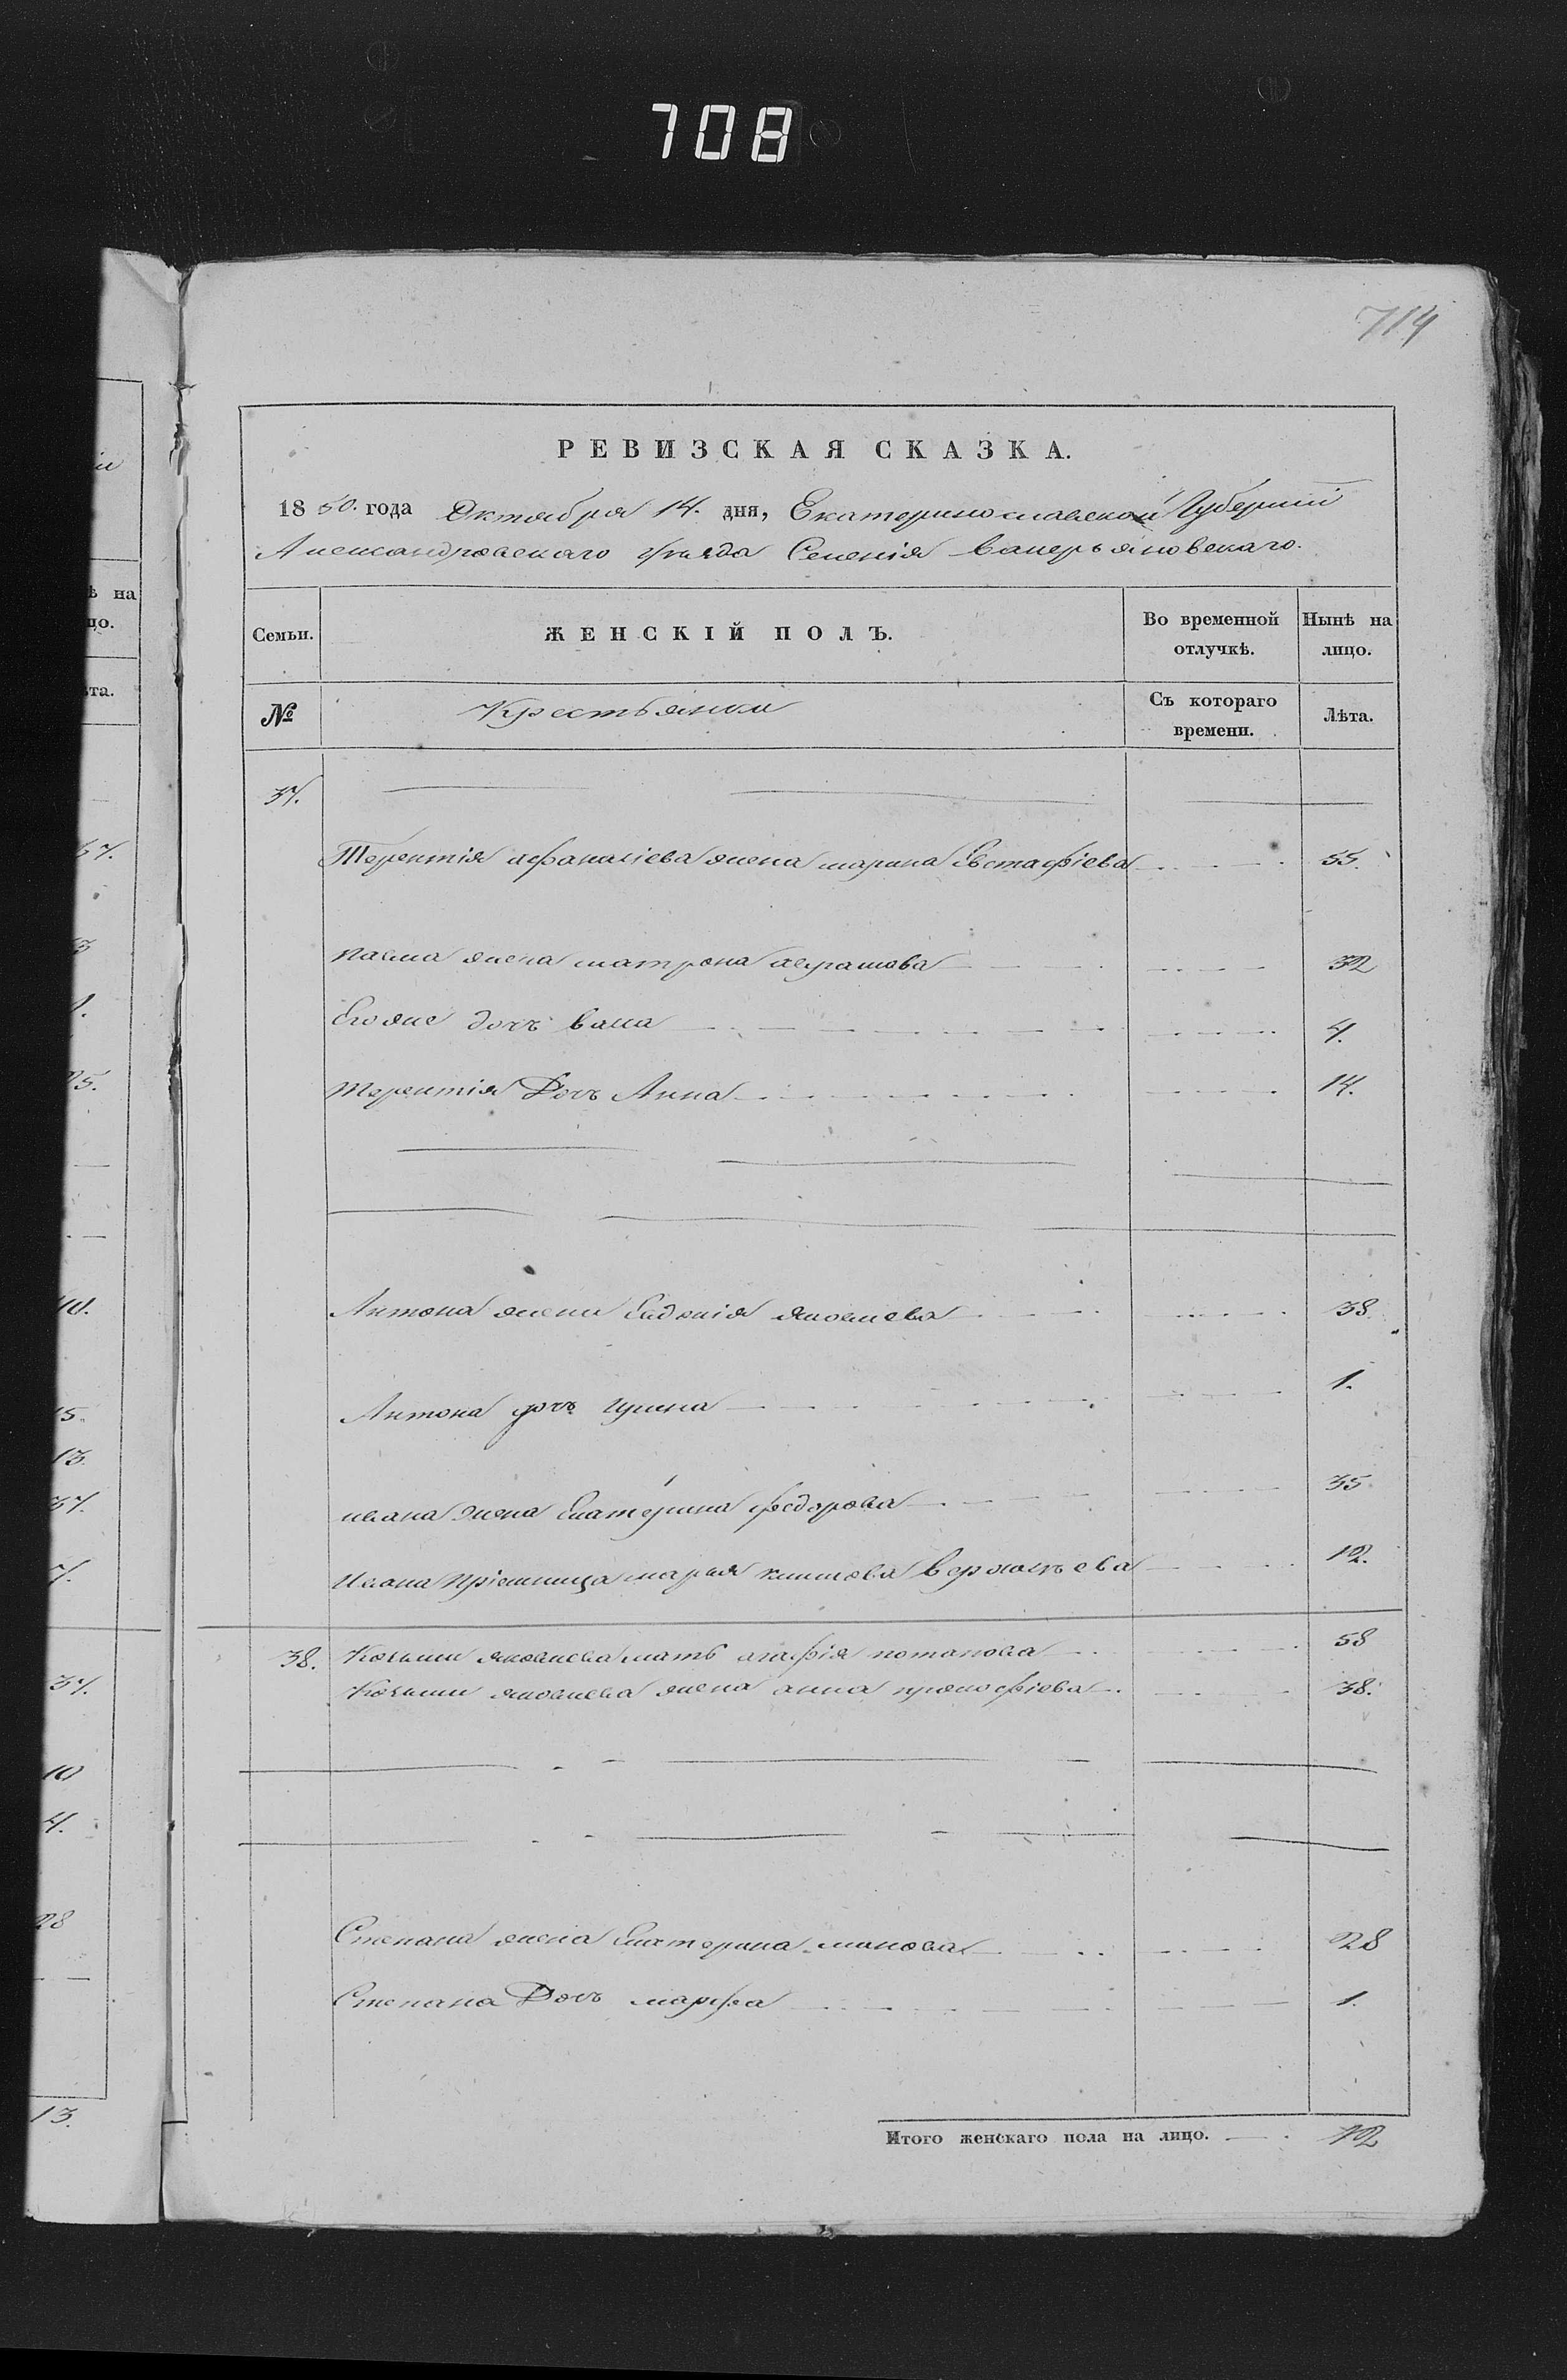 708
714
РЕВИЗСКАЯ СКАЗКА.
1850. года Октября 14. дня, Екатеринославской Губерніи
Александровскаго уѣзда Селенія Валерьяновскаго.
Семьи. ЖЕНСКІЙ ПОЛЪ. Во временной отлучкѣ. Нынѣ на лицо.
№ Крестьянки Съ котораго времени. Лѣта.
37.
Терентія афанасіева жена марина Евстафіева 55.
павла жена матрона аврамова 32
Егоже дочь 4.
Терентія Дочь Анна 14.
Антона жена Евдокія яковлева 38
Антона дочь 1.
ивана жена Екатерина федорова 35
Ивана Пріемница марья 12.
38. Козьмы яковлева мать агафія потапова 58
Козьмы яковлева жена анна прокофіева 38.
Степана жена Екатерина 28
Степана Дочь марфа 1.
Итого женскаго пола на лицо. 12
ѣ на
цо.
ѣта.
57.
3
25.
40.
15.
13.
37.
7.
37.
10
4.
28
13.